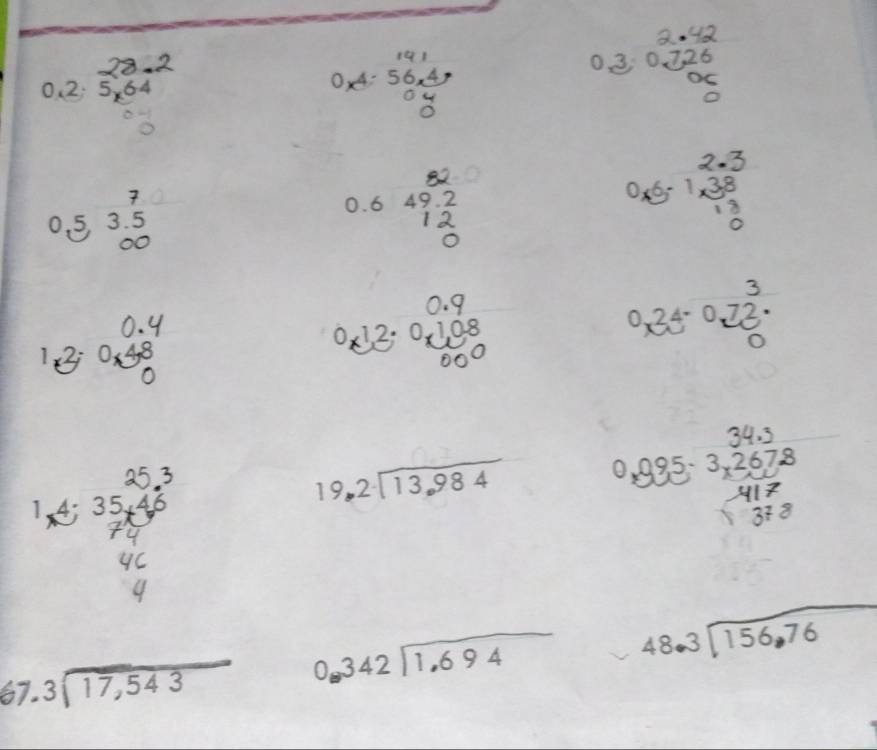 28.2 141 2.42
0.2 5.64 0.4 56.4 0.3 0.726
04 04 06
0 0 0
7 82 2.3
0.5 3.5 0.6 49.2 0.6 1.38
00 12 18
0 0
0.4 0.9 3
1.2 0.48 0.12 0.108 0.24 0.72.
0 000 0
25.3 34.3
1.4 35.46 19.2 13.984 0.095 3.2678
74 417
46 378
4
67.3 17,543 0.342 1.694 48.3 156.76